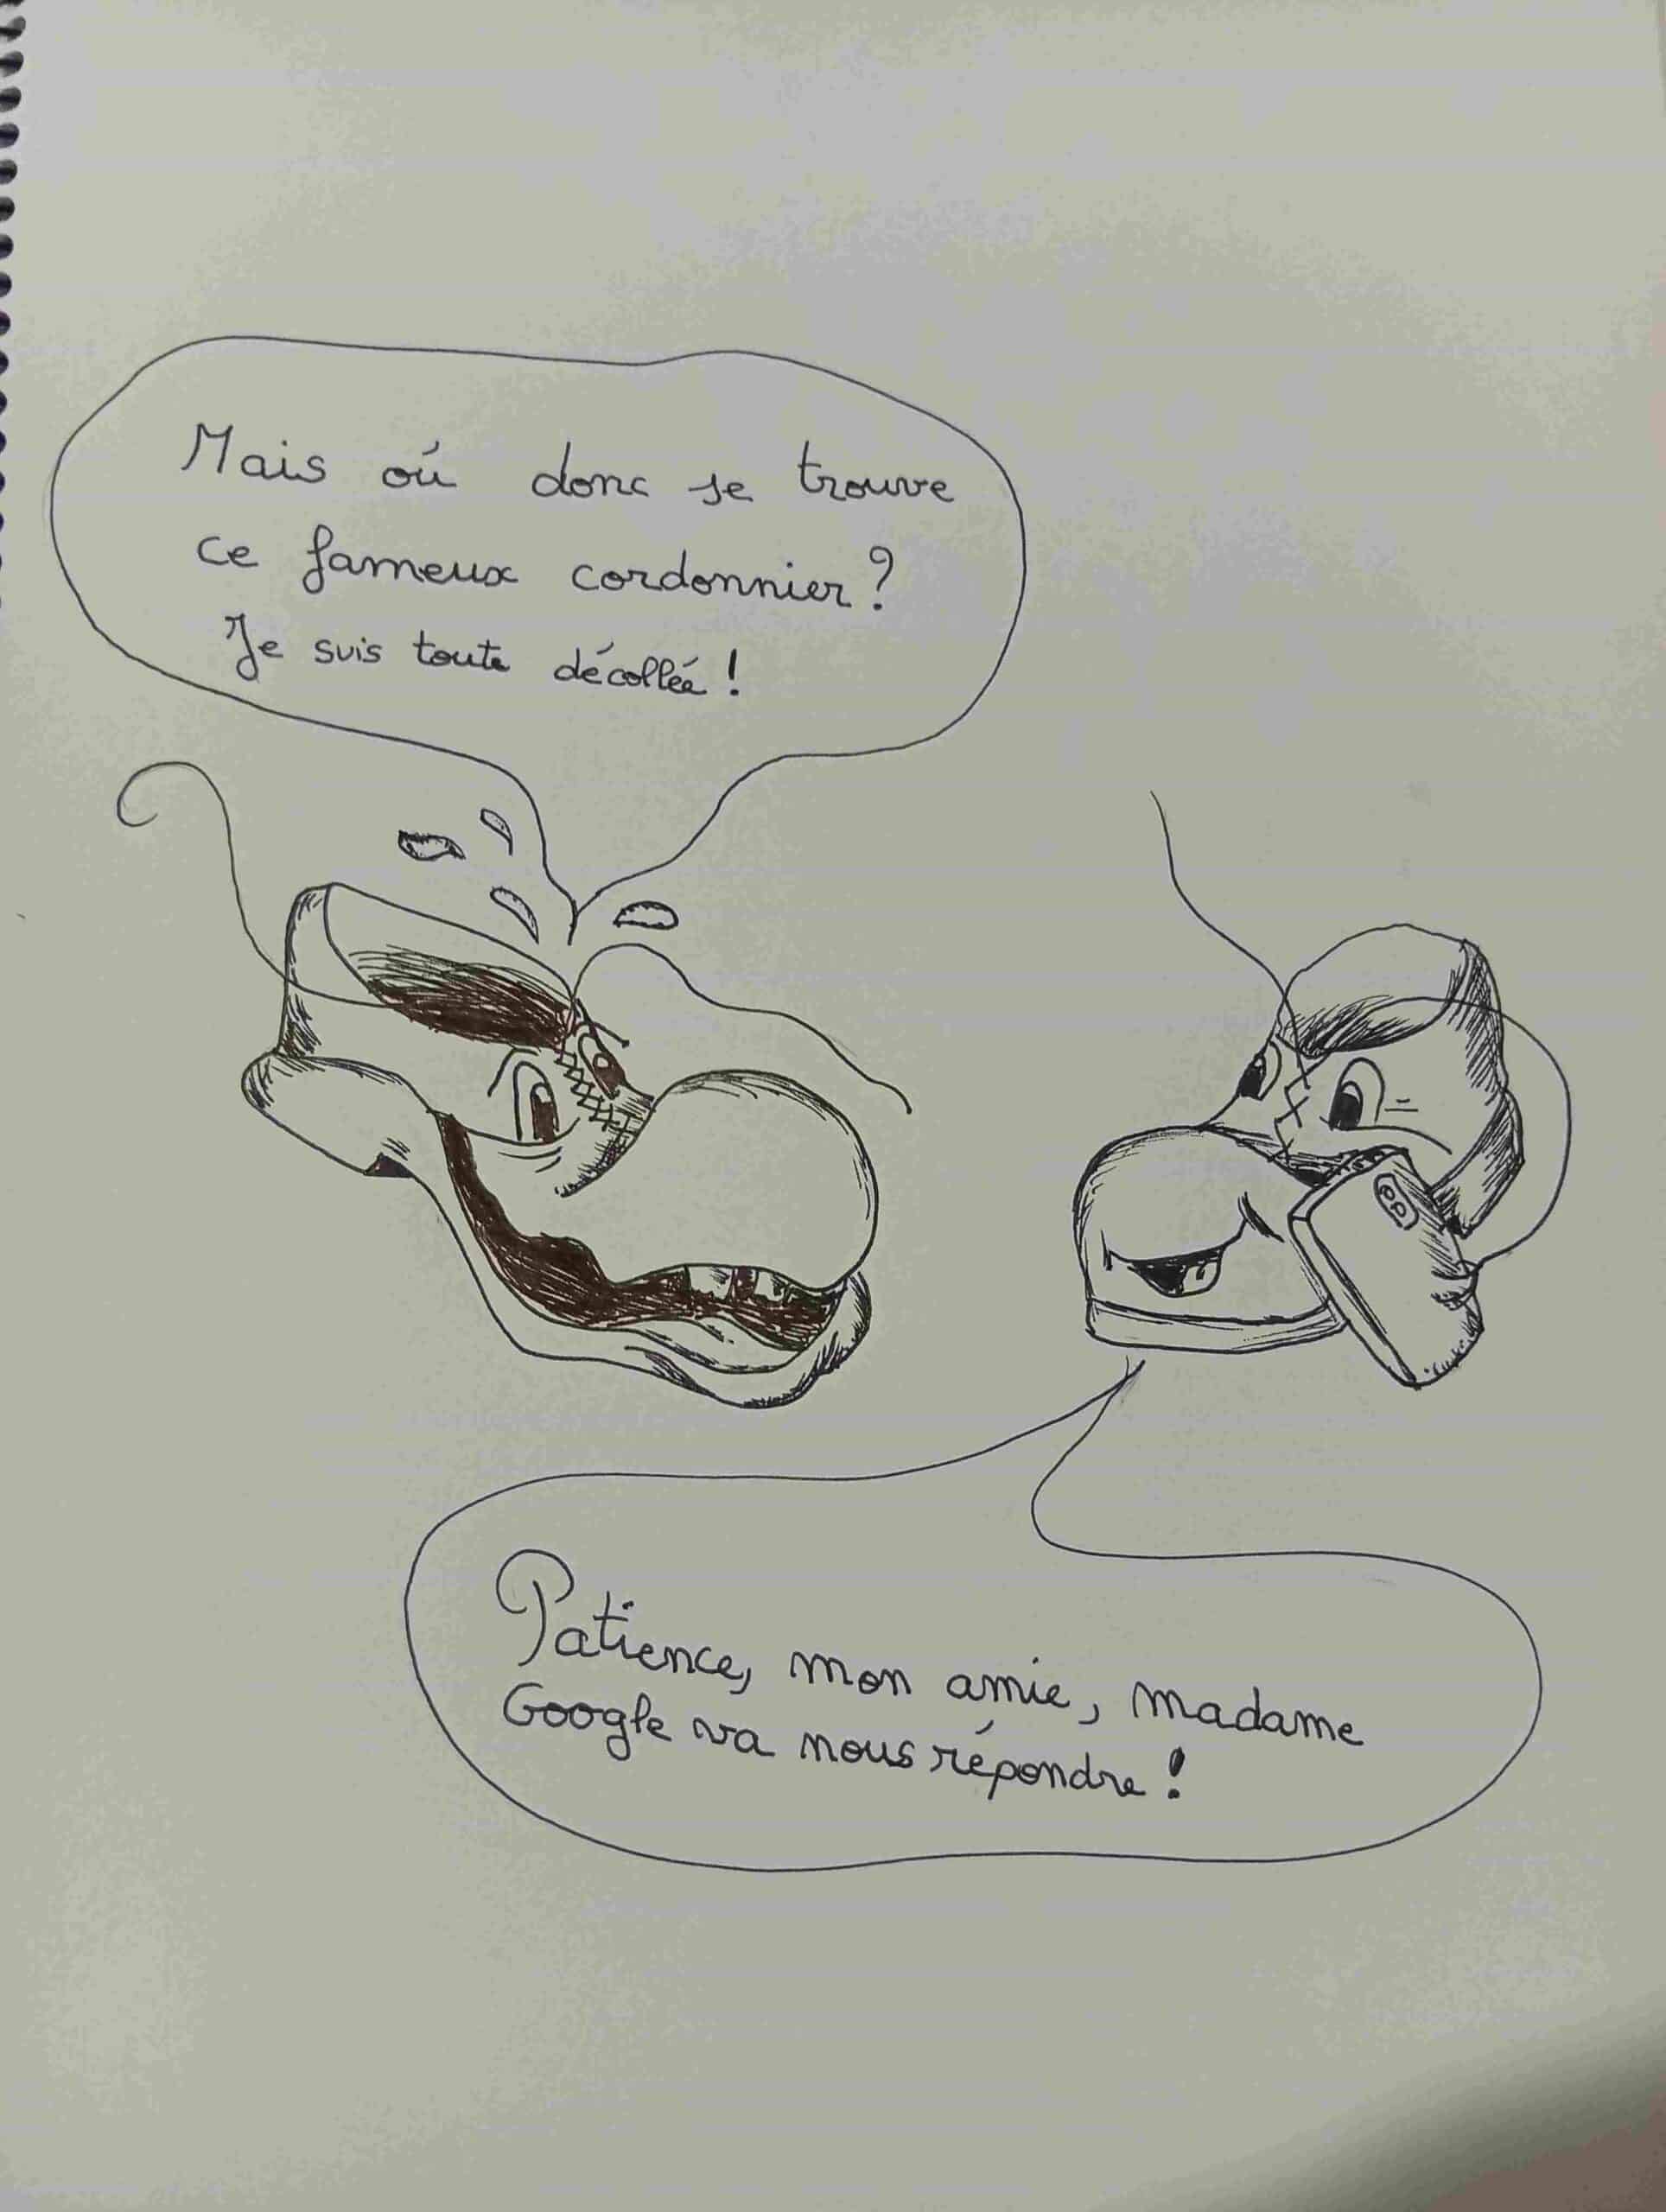 Mais où donc se trouve
ce fameux cordonnier ?
Je suis toute décollée !
Patience, mon amie, madame
Google va nous répondre !